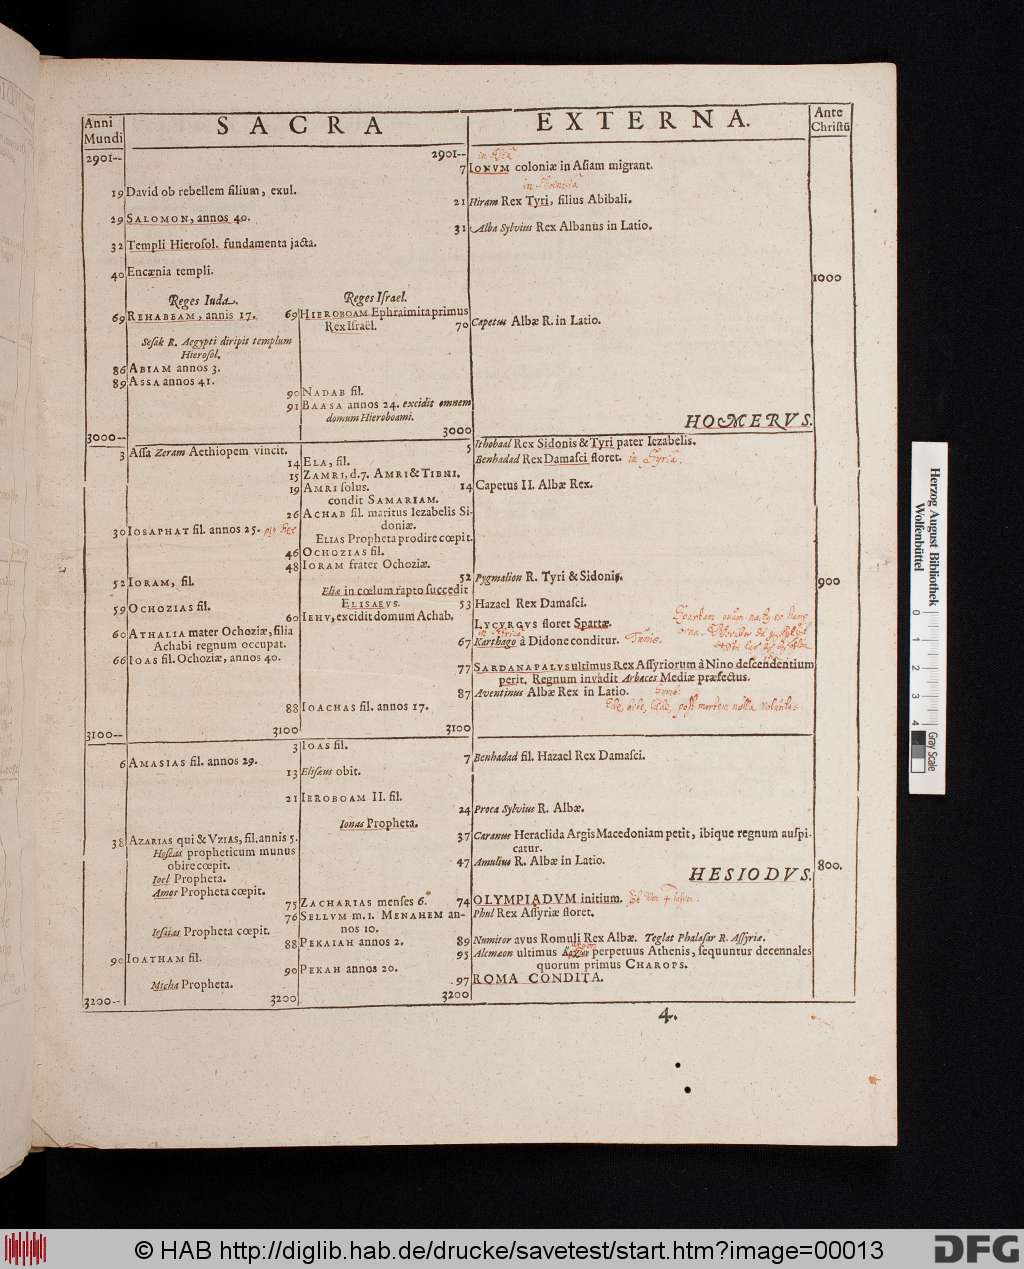 Anni
Mundi
S A C R A
E X T E R N A.
Ante
Christū
2901--
2901--
7 IONVM coloniæ in Asiam migrant.
19 David ob rebellem filium, exul.
21 Hiram Rex Tyri, filius Abibali.
29 SALOMON, annos 40.
31 Alba Sylvius Rex Albanus in Latio.
32 Templi Hierosol. fundamenta jacta.
40 Encænia templi.
1000
Reges Iuda.
Reges Israel.
69 REHABEAM, annis 17.
69 HIEROBOAM Ephraimita primus
Rex Israël.
70 Capetus Albæ R. in Latio.
Sesak R. Aegypti diripit templum
Hierosol.
86 ABIAM annos 3.
89 ASSA annos 41.
90 NADAB fil.
91 BAASA annos 24. excidit omnem
domum Hieroboami.
HOMERVS.
3000--
3000
3 Assa Zeram Aethiopem vincit.
5 Ithobaal Rex Sidonis & Tyri pater Iezabelis.
Benhadad Rex Damasci floret. in Syria.
14 ELA, fil.
15 ZAMRI, d. 7. AMRI & TIBNI.
19 AMRI solus.
condit SAMARIAM.
14 Capetus II. Albæ Rex.
26 ACHAB fil. maritus Iezabelis Si-
doniæ.
30 IOSAPHAT fil. annos 25.
ELIAS Propheta prodire cœpit.
46 OCHOZIAS fil.
48 IORAM frater Ochoziæ.
52 IORAM, fil.
Eliæ in cœlum rapto succedit
ELISAEVS.
52 Pygmalion R. Tyri & Sidonis.
900
59 OCHOZIAS fil.
53 Hazael Rex Damasci.
60 IEHV, excidit domum Achab.
LYCVRGVS floret Spartæ.
60 ATHALIA mater Ochoziæ, filia
Achabi regnum occupat.
67 Karthago à Didone conditur.
66 IOAS fil. Ochoziæ, annos 40.
77 SARDANAPALVS ultimus Rex Assyriorum à Nino descendentium
perit. Regnum invadit Arbaces Mediæ præfectus.
87 Aventinus Albæ Rex in Latio.
Ede, bibe, lude, post mortem nulla voluptas.
88 IOACHAS fil. annos 17.
3100--
3100
3100
3 IOAS fil.
6 AMASIAS fil. annos 29.
7 Benhadad fil. Hazael Rex Damasci.
13 Elisæus obit.
21 IEROBOAM II. fil.
24 Proca Sylvius R. Albæ.
Ionas Propheta.
38 AZARIAS qui & VZIAS, fil. annis 5.
Hoseas propheticum munus
obire cœpit.
Ioel Propheta.
Amos Propheta cœpit.
37 Caranus Heraclida Argis Macedoniam petit, ibique regnum auspi-
catur.
47 Amulius R. Albæ in Latio.
800.
HESIODVS.
75 ZACHARIAS menses 6.
74 OLYMPIADVM initium.
76 SELLVM m. 1. MENAHEM an-
nos 10.
Phul Rex Assyriæ floret.
Iesaias Propheta cœpit.
88 PEKAIAH annos 2.
89 Numitor avus Romuli Rex Albæ. Teglat Phalasar R. Assyriæ.
90 IOATHAM fil.
95 Alcmæon ultimus perpetuus Athenis, sequuntur decennales
quorum primus CHAROPS.
90 PEKAH annos 20.
97 ROMA CONDITA.
Micha Propheta.
3200--
3200
3200
4.
Herzog August Bibliothek
Wolfenbüttel
0 1 2 3 4
Gray Scale
© HAB http://diglib.hab.de/drucke/savetest/start.htm?image=00013
DFG